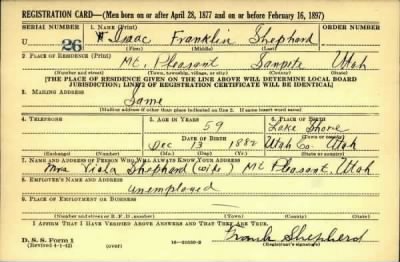 REGISTRATION CARD—(Men born on or after April 28, 1877 and on or before February 16, 1897)
SERIAL NUMBER 1. NAME (Print)
U 26 Isaac Franklin Shephard
(First) (Middle) (Last)
2. PLACE OF RESIDENCE (Print)
Mt. Pleasant Sanpete Utah
(Number and street) (Town, township, village, or city) (County) (State)
[THE PLACE OF RESIDENCE GIVEN ON THE LINE ABOVE WILL DETERMINE LOCAL BOARD
JURISDICTION; LINE 2 OF REGISTRATION CERTIFICATE WILL BE IDENTICAL]
3. MAILING ADDRESS
Same
(Mailing address if other than place indicated on line 2. If same insert word same)
4. TELEPHONE 5. AGE IN YEARS 6. PLACE OF BIRTH
59 Lake Shore
DATE OF BIRTH (Town or county)
Dec 13 1882 Utah Co. Utah
(Exchange) (Number) (Mo.) (Day) (Yr.) (State or country)
7. NAME AND ADDRESS OF PERSON WHO WILL ALWAYS KNOW YOUR ADDRESS
Mrs Viola Shephard (wife) Mt Pleasant, Utah
8. EMPLOYER'S NAME AND ADDRESS
unemployed
9. PLACE OF EMPLOYMENT OR BUSINESS
(Number and street or R. F. D. number) (Town) (County) (State)
I AFFIRM THAT I HAVE VERIFIED ABOVE ANSWERS AND THAT THEY ARE TRUE.
D. S. S. Form 1 Frank Shepherd
(Revised 4-1-42) (over) (Registrant's signature)